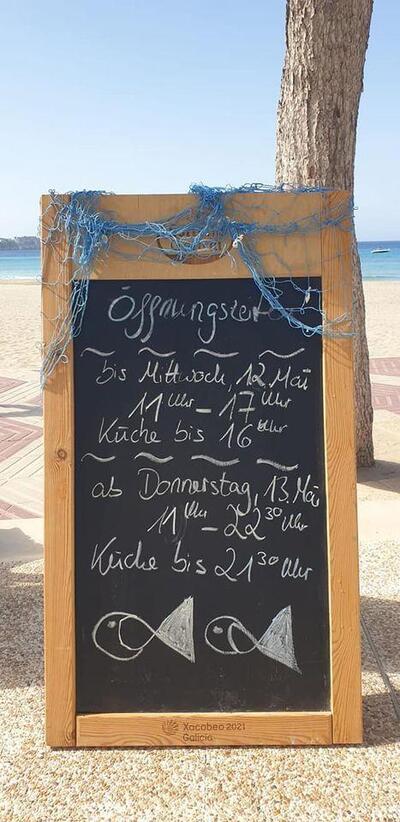 Öffnungszeit
bis Mittwoch, 12. Mai
11 Uhr - 17 Uhr
Küche bis 16 Uhr
ab Donnerstag, 13. Mai
11 Uhr - 22 30 Uhr
Küche bis 21 30 Uhr
Xacobeo 2021
Galicia